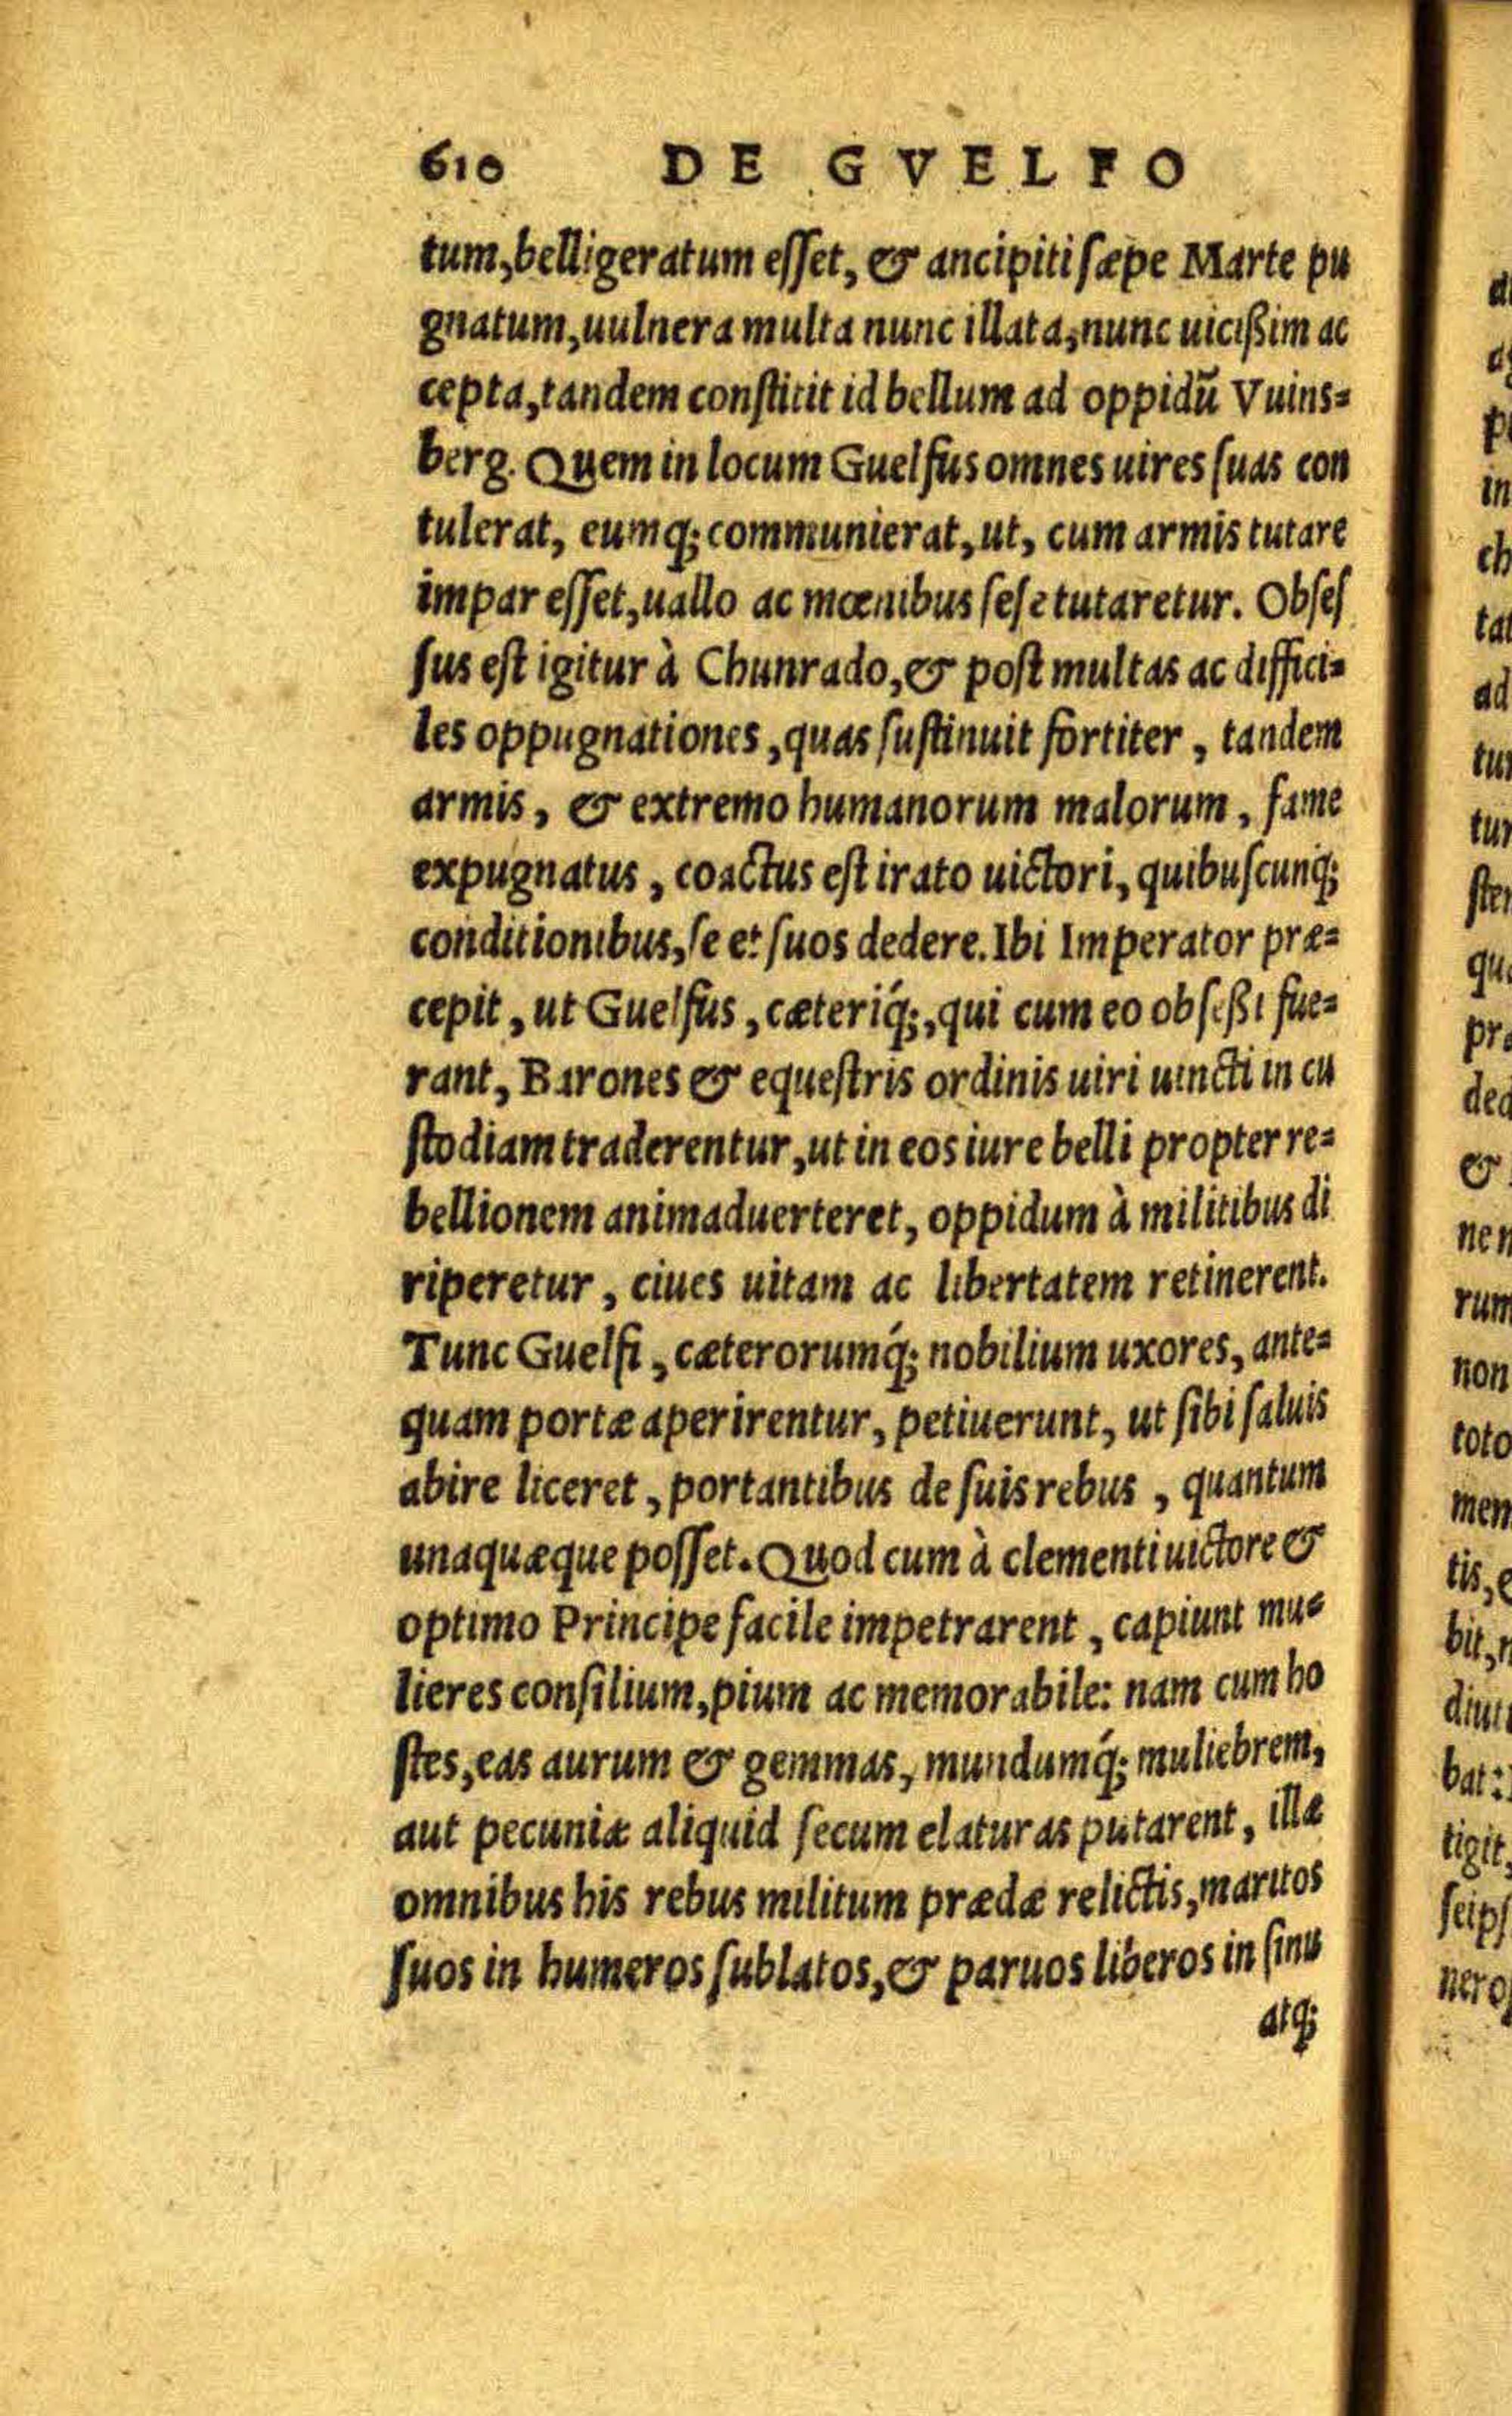 610 DE GVELFO
tum, belligeratum esset, & ancipiti sæpe Marte pu
gnatum, uulnera multa nunc illata, nunc uicißim ac
cepta, tandem constitit id bellum ad oppidũ Vuins=
berg. Quem in locum Guelfus omnes uires suas con
tulerat, eumq; communierat, ut, cum armis tutare
impar esset, uallo ac mœnibus sese tutaretur. Obses
sus est igitur à Chunrado, & post multas ac diffici=
les oppugnationes, quas sustinuit fortiter, tandem
armis, & extremo humanorum malorum, fame
expugnatus, coactus est irato uictori, quibuscunq;
conditionibus, se et suos dedere. Ibi Imperator præ=
cepit, ut Guelfus, cæteriq́;, qui cum eo obseßi fue=
rant, Barones & equestris ordinis uiri uincti in cu
stodiam traderentur, ut in eos iure belli propter re=
bellionem animaduerteret, oppidum à militibus di
riperetur, ciues uitam ac libertatem retinerent.
Tunc Guelfi, cæterorumq́; nobilium uxores, ante=
quam portæ aperirentur, petiuerunt, ut sibi saluis
abire liceret, portantibus de suis rebus, quantum
unaquæque posset. Quod cum à clementi uictore &
optimo Principe facile impetrarent, capiunt mu=
lieres consilium, pium ac memorabile: nam cum ho
stes, eas aurum & gemmas, mundumq́; muliebrem,
aut pecuniæ aliquid secum elaturas putarent, illæ
omnibus his rebus militum prædæ relictis, maritos
suos in humeros sublatos, & paruos liberos in sinu
atq;